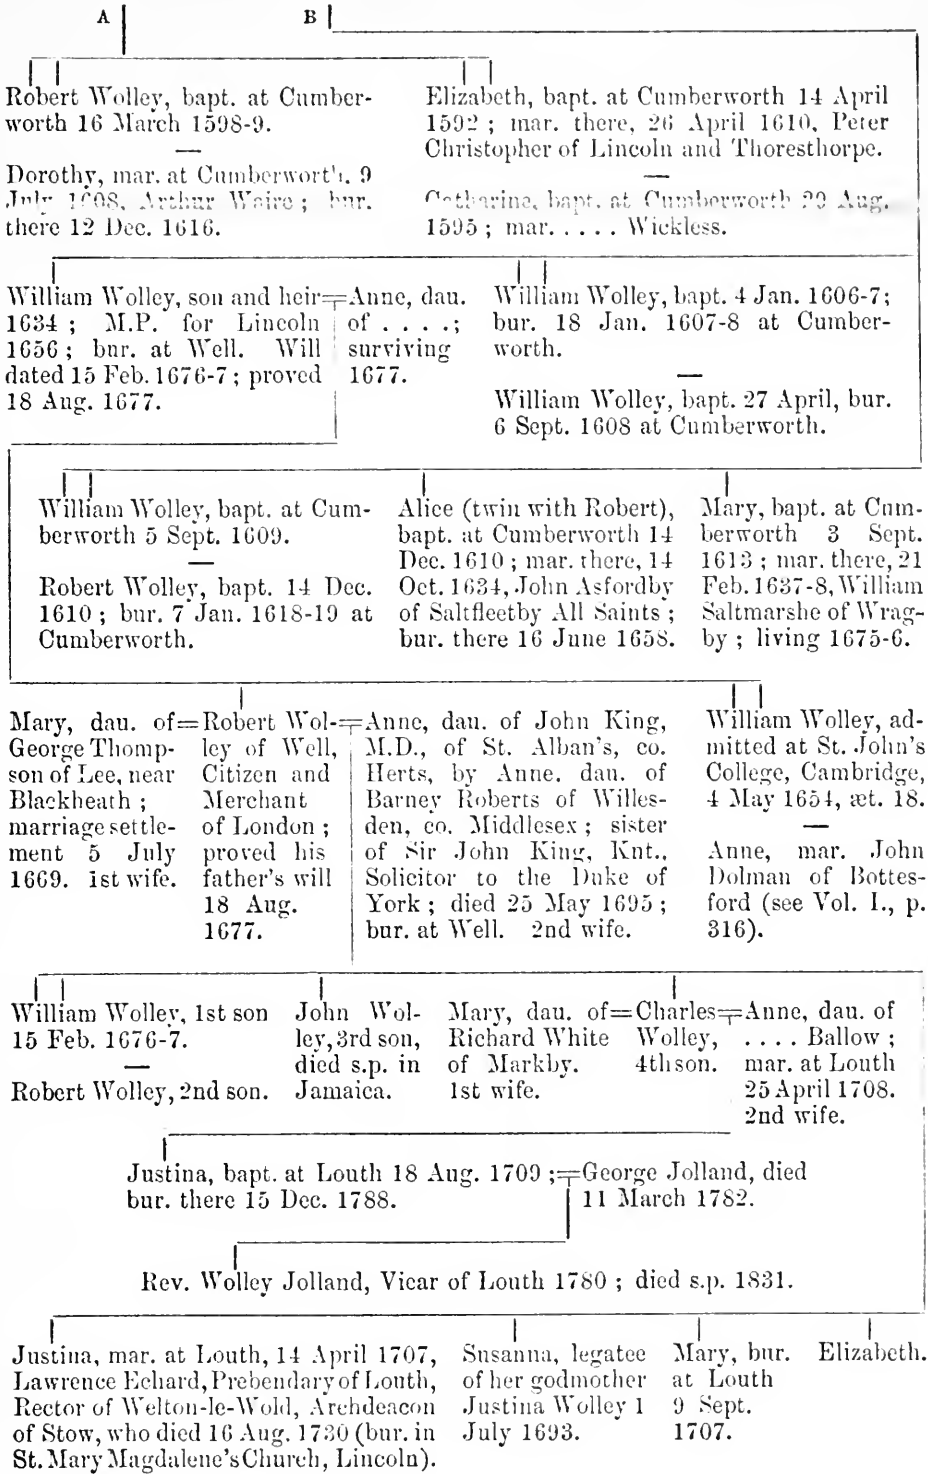 A B
Robert Wolley, bapt. at Cumber-
worth 16 March 1598-9.
—
Dorothy, mar. at Cumberworth, 9
July 1608, Arthur Waire; bur.
there 12 Dec. 1616.
Elizabeth, bapt. at Cumberworth 14 April
1592; mar. there, 26 April 1610, Peter
Christopher of Lincoln and Thoresthorpe.
—
Catharine, bapt. at Cumberworth 29 Aug.
1595; mar. . . . . Wickless.
William Wolley, son and heir
1634; M.P. for Lincoln
1656; bur. at Well. Will
dated 15 Feb. 1676-7; proved
18 Aug. 1677.
=Anne, dau.
of . . . .;
surviving
1677.
William Wolley, bapt. 4 Jan. 1606-7;
bur. 18 Jan. 1607-8 at Cumber-
worth.
—
William Wolley, bapt. 27 April, bur.
6 Sept. 1608 at Cumberworth.
William Wolley, bapt. at Cum-
berworth 5 Sept. 1609.
—
Robert Wolley, bapt. 14 Dec.
1610; bur. 7 Jan. 1618-19 at
Cumberworth.
Alice (twin with Robert),
bapt. at Cumberworth 14
Dec. 1610; mar. there, 14
Oct. 1634, John Asfordby
of Saltfleetby All Saints;
bur. there 16 June 1658.
Mary, bapt. at Cum-
berworth 3 Sept.
1613; mar. there, 21
Feb. 1637-8, William
Saltmarshe of Wrag-
by; living 1675-6.
Mary, dau. of=
George Thomp-
son of Lee, near
Blackheath;
marriage settle-
ment 5 July
1669. 1st wife.
Robert Wol-
ley of Well,
Citizen and
Merchant
of London;
proved his
father's will
18 Aug.
1677.
=Anne, dau. of John King,
M.D., of St. Alban's, co.
Herts, by Anne. dau. of
Barney Roberts of Willes-
den, co. Middlesex; sister
of Sir John King, Knt.,
Solicitor to the Duke of
York; died 25 May 1695;
bur. at Well. 2nd wife.
William Wolley, ad-
mitted at St. John's
College, Cambridge,
4 May 1654, æt. 18.
—
Anne, mar. John
Dolman of Bottes-
ford (see Vol. I., p.
316).
William Wolley, 1st son
15 Feb. 1676-7.
—
Robert Wolley, 2nd son.
John Wol-
ley, 3rd son,
died s.p. in
Jamaica.
Mary, dau. of=
Richard White
of Markby.
1st wife.
Charles
Wolley,
4th son.
=Anne, dau. of
. . . . Ballow;
mar. at Louth
25 April 1708.
2nd wife.
Justina, bapt. at Louth 18 Aug. 1709;
bur. there 15 Dec. 1788.
=George Jolland, died
11 March 1782.
Rev. Wolley Jolland, Vicar of Louth 1780; died s.p. 1831.
Justina, mar. at Louth, 14 April 1707,
Lawrence Echard, Prebendary of Louth,
Rector of Welton-le-Wold, Archdeacon
of Stow, who died 16 Aug. 1730 (bur. in
St. Mary Magdalene's Church, Lincoln).
Susanna, legatee
of her godmother
Justina Wolley 1
July 1693.
Mary, bur.
at Louth
9 Sept.
1707.
Elizabeth.